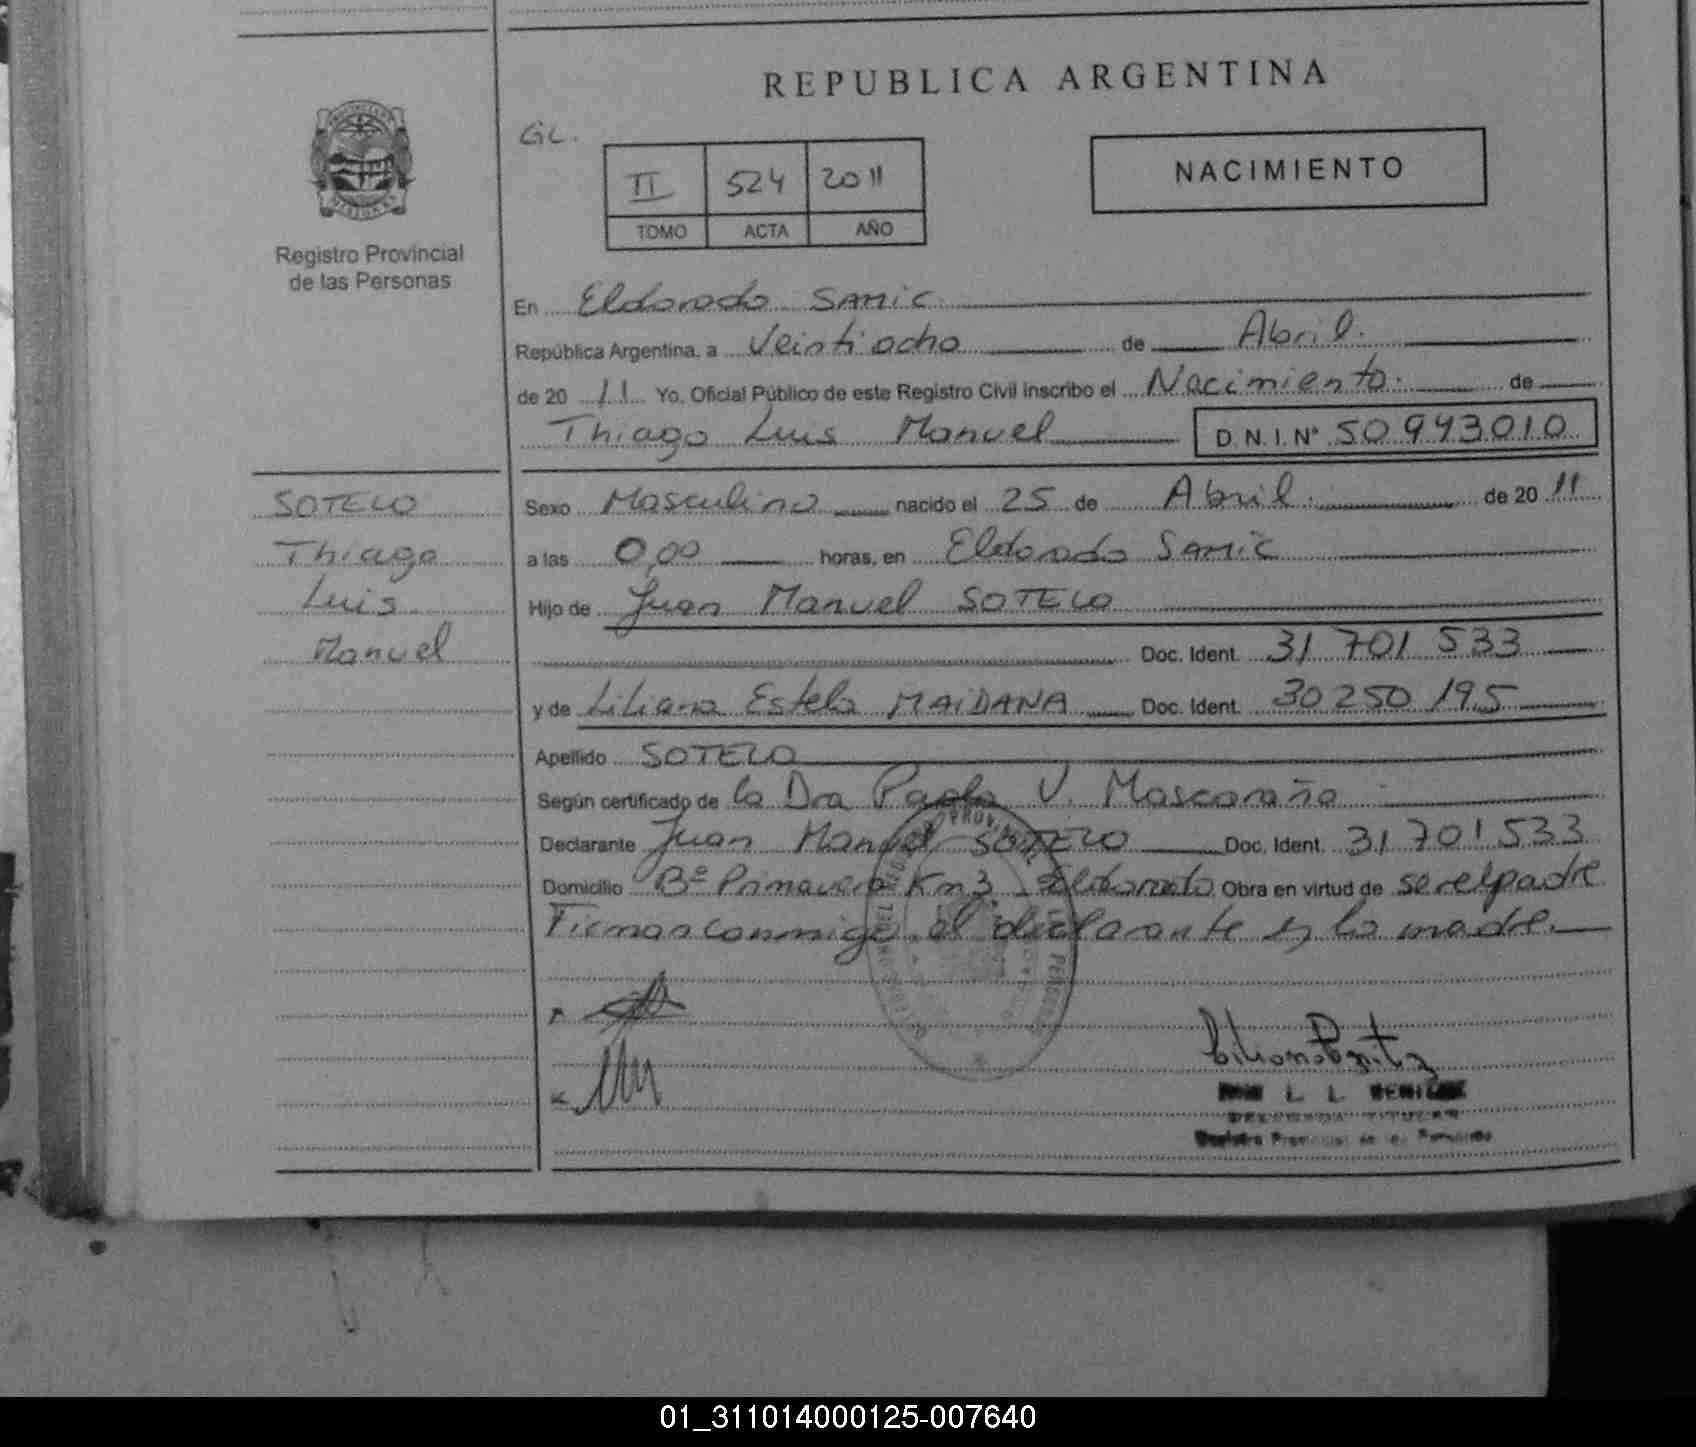 REPUBLICA ARGENTINA
GL.
NACIMIENTO
II 524 2011
TOMO ACTA AÑO
Registro Provincial
de las Personas
En Eldorado SAMIC
República Argentina, a Veintiocho de Abril.
de 20 11 Yo, Oficial Público de este Registro Civil inscribo el Nacimiento. de
Thiago Luis Manuel D.N.I.Nº 50943010
SOTELO
Thiago
Luis
Manuel
Sexo Masculino nacido el 25 de Abril. de 20 11
a las 0,00 horas, en Eldorado SAMIC
Hijo de Juan Manuel SOTELO
Doc. Ident. 31 701 533
y de Liliana Estela MAIDANA Doc. Ident. 30 250 195
Apellido SOTELO
Según certificado de la Dra Paola V. Mascaraño
Declarante Juan Manuel SOTELO Doc. Ident. 31 701 533
Domicilio Bº Primavera Km 3 Eldorado Obra en virtud de ser el padre
Firman conmigo el declarante y la madre.
DELEGADA TITULAR
Registro Provincial de las Personas
01_311014000125-007640